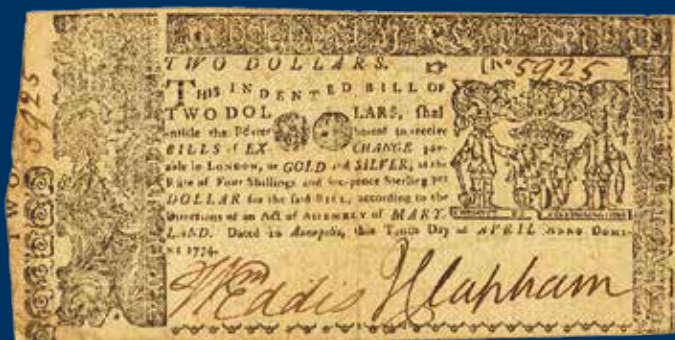 TWO DOLLARS. [No 5925
THIS INDENTED BILL OF
TWO DOLLARS, shal
entitle the Bearer hereof to receive
BILLS of EXCHANGE pay-
able in LONDON, or GOLD and SILVER, at the
Rate of Four Shillings and six-pence Sterling per
DOLLAR for the said BILL, according to the
Directions of an Act of ASSEMBLY of MARY-
LAND. Dated in Annapolis, this Tenth Day of APRIL ANNO DOMI-
NI 1774.
Wm Eddis J Clapham
TWO 5925